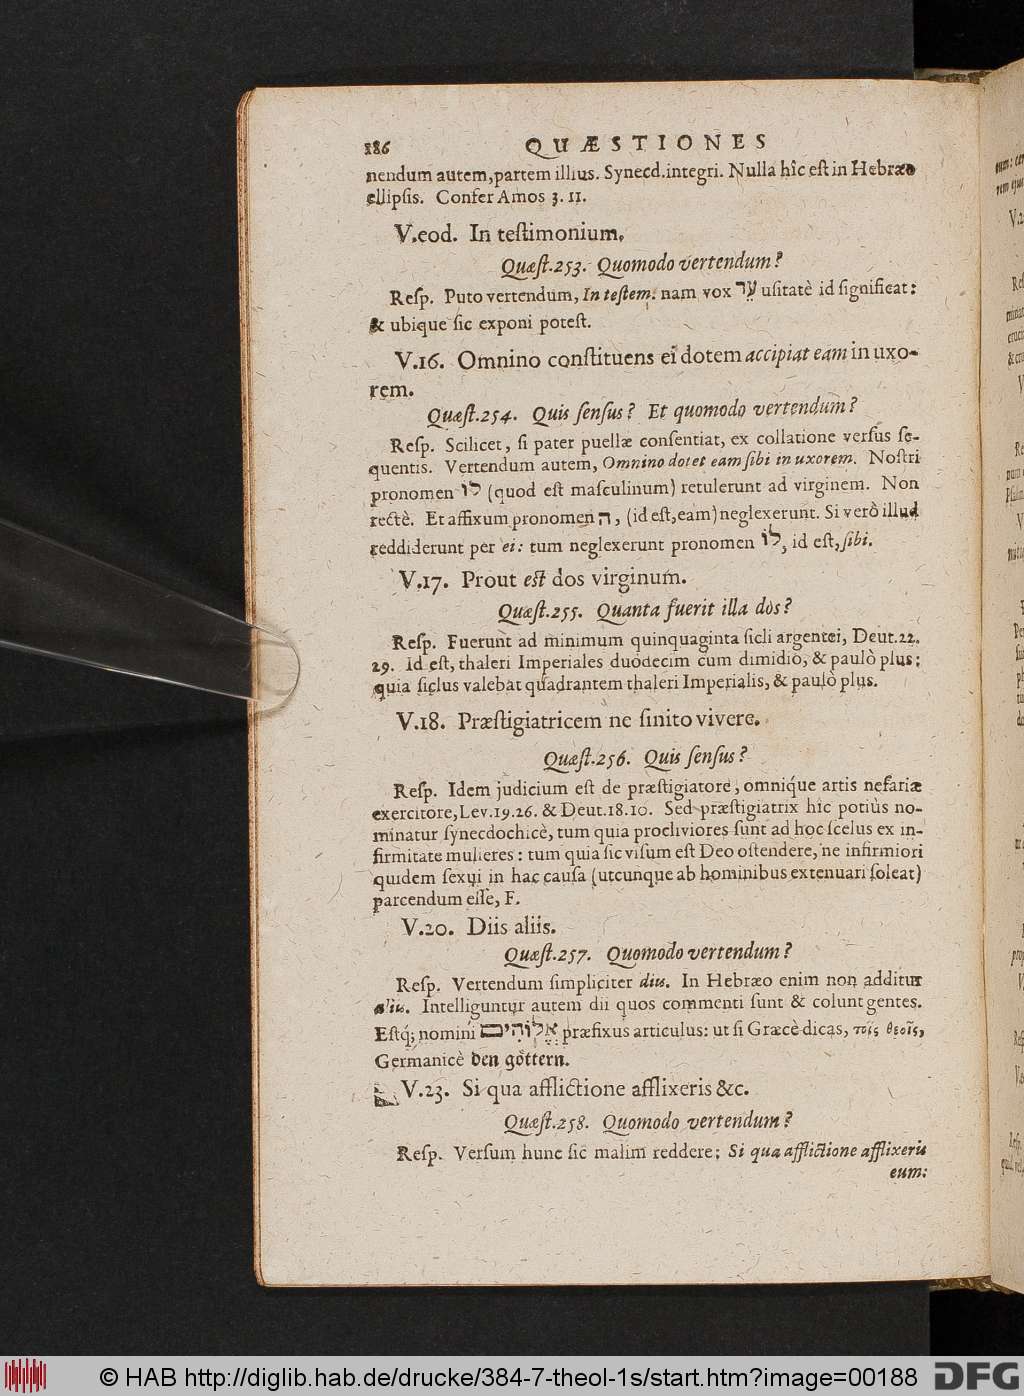 186 QUÆSTIONES
nendum autem, partem illius. Synecd. integri. Nulla hîc eſt in Hebræo
ellipſis. Confer Amos 3. 11.
V. eod. In teſtimonium.
Quæſt. 253. Quomodo vertendum?
Reſp. Puto vertendum, In teſtem: nam vox עֵד uſitatè id ſignificat:
& ubique ſic exponi poteſt.
V. 16. Omnino conſtituens ei dotem accipiat eam in uxo-
rem.
Quæſt. 254. Quis ſenſus? Et quomodo vertendum?
Reſp. Scilicet, ſi pater puellæ conſentiat, ex collatione verſus ſe-
quentis. Vertendum autem, Omnino dotet eam ſibi in uxorem. Noſtri
pronomen לו (quod eſt maſculinum) retulerunt ad virginem. Non
rectè. Et affixum pronomen ה, (id eſt, eam) neglexerunt. Si verò illud
reddiderunt per ei: tum neglexerunt pronomen לוֹ, id eſt, ſibi.
V. 17. Prout eſt dos virginum.
Quæſt. 255. Quanta fuerit illa dos?
Reſp. Fuerunt ad minimum quinquaginta ſicli argentei, Deut. 22.
29. Id eſt, thaleri Imperiales duodecim cum dimidio, & paulò plus;
quia ſiclus valebat quadrantem thaleri Imperialis, & paulò plus.
V. 18. Præſtigiatricem ne ſinito vivere.
Quæſt. 256. Quis ſenſus?
Reſp. Idem judicium eſt de præſtigiatore, omniq́ue artis nefariæ
exercitore, Lev. 19. 26. & Deut. 18. 10. Sed præſtigiatrix hîc potiùs no-
minatur ſynecdochicè, tum quia procliviores ſunt ad hoc ſcelus ex in-
firmitate mulieres: tum quia ſic viſum eſt Deo oſtendere, ne infirmiori
quidem ſexui in hac cauſa (utcunque ab hominibus extenuari ſoleat)
parcendum eſſe, F.
V. 20. Diis aliis.
Quæſt. 257. Quomodo vertendum?
Reſp. Vertendum ſimpliciter diis. In Hebræo enim non additur
aliis. Intelliguntur autem dii quos commenti ſunt & colunt gentes.
Eſtq́; nomini אֱלוֹהִים præfixus articulus: ut ſi Græcè dicas, τοῖς θεοῖς,
Germanicè den göttern.
V. 23. Si qua afflictione afflixeris &c.
Quæſt. 258. Quomodo vertendum?
Reſp. Verſum hunc ſic malim reddere; Si qua afflictione afflixeris
eum:
© HAB http://diglib.hab.de/drucke/384-7-theol-1s/start.htm?image=00188
DFG